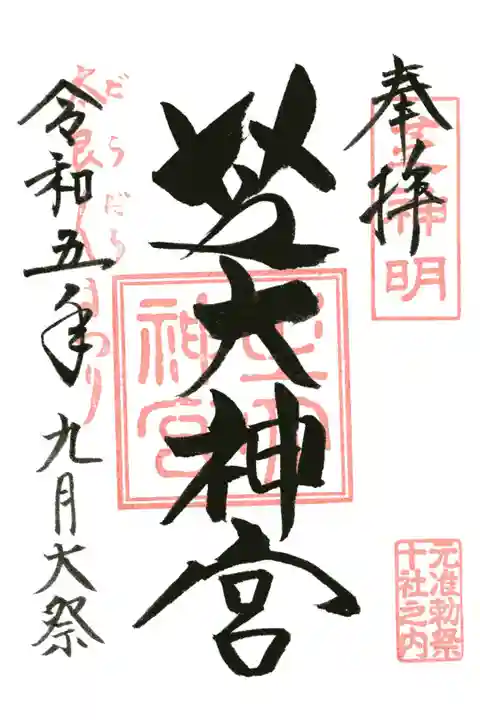 奉拝
芝神明
元准勅祭
十社之内
芝大神宮
芝大
神宮
だらだら
令和五年 九月大祭